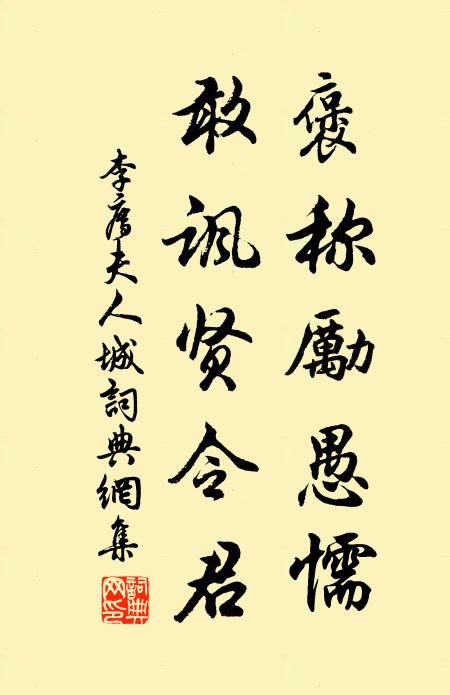 褒称勵愚懦
敢讽贤令君
李廌夫人城詞典網集
詞典
网印